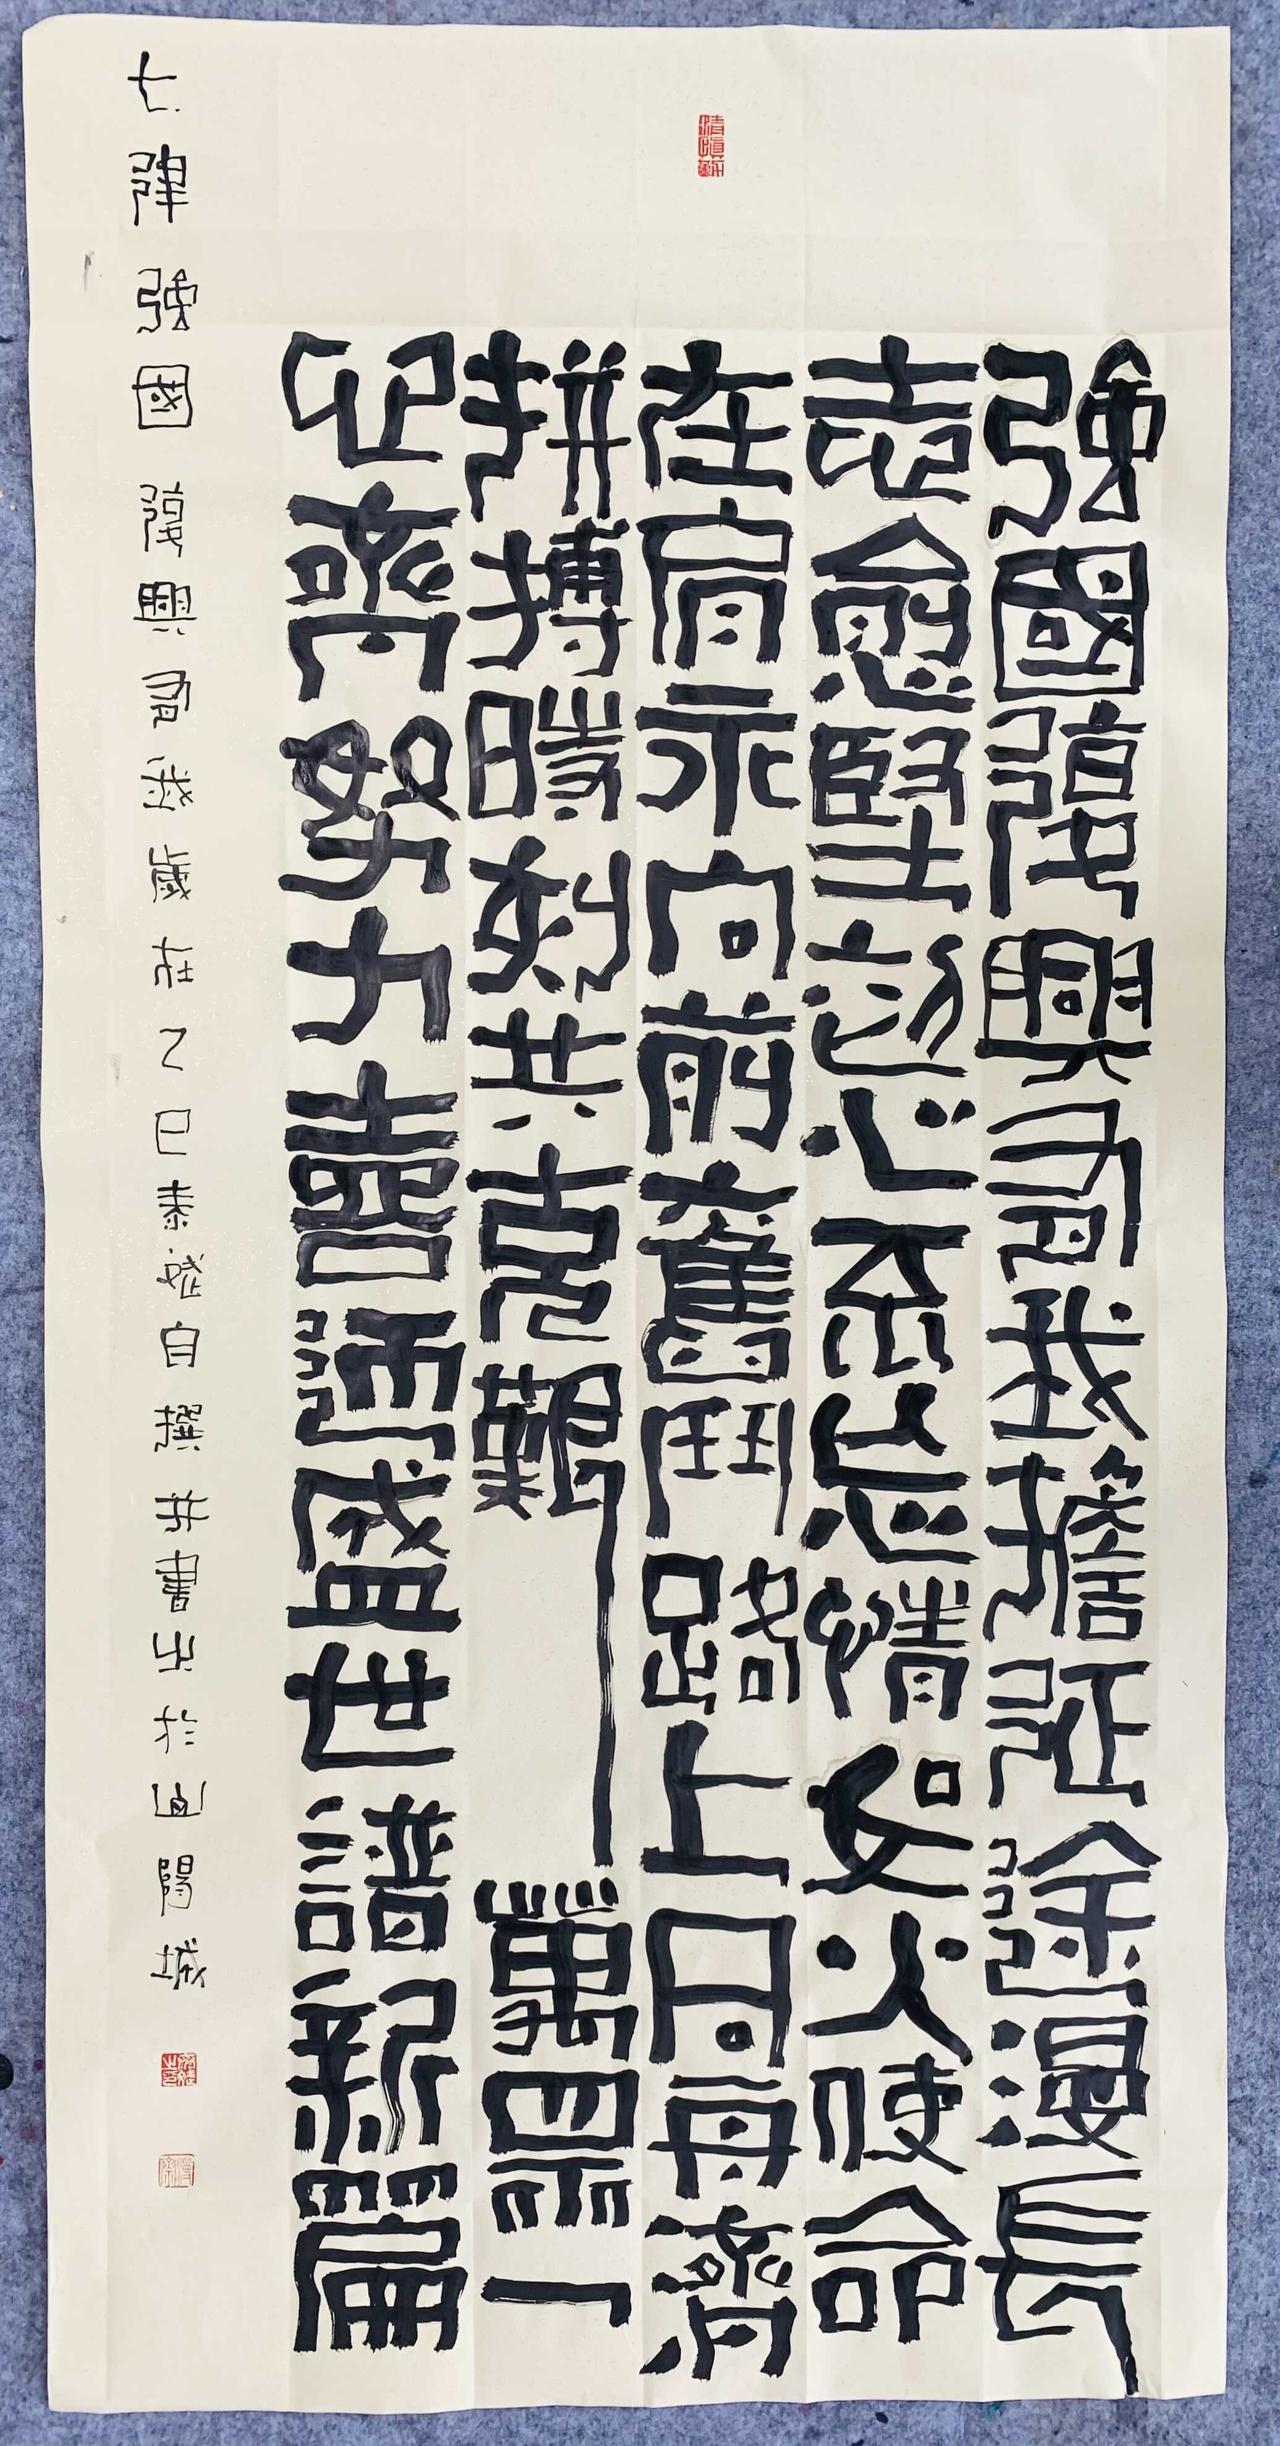 強國復興有我擔征途漫長
志愈堅初心不忘情如火使命
在肩永向前奮鬥路上同舟濟
拼搏時刻共克艱萬眾一
心齊努力喜盛世譜新篇
七律強國復興有我歲在乙巳自撰并書之於宜陽城